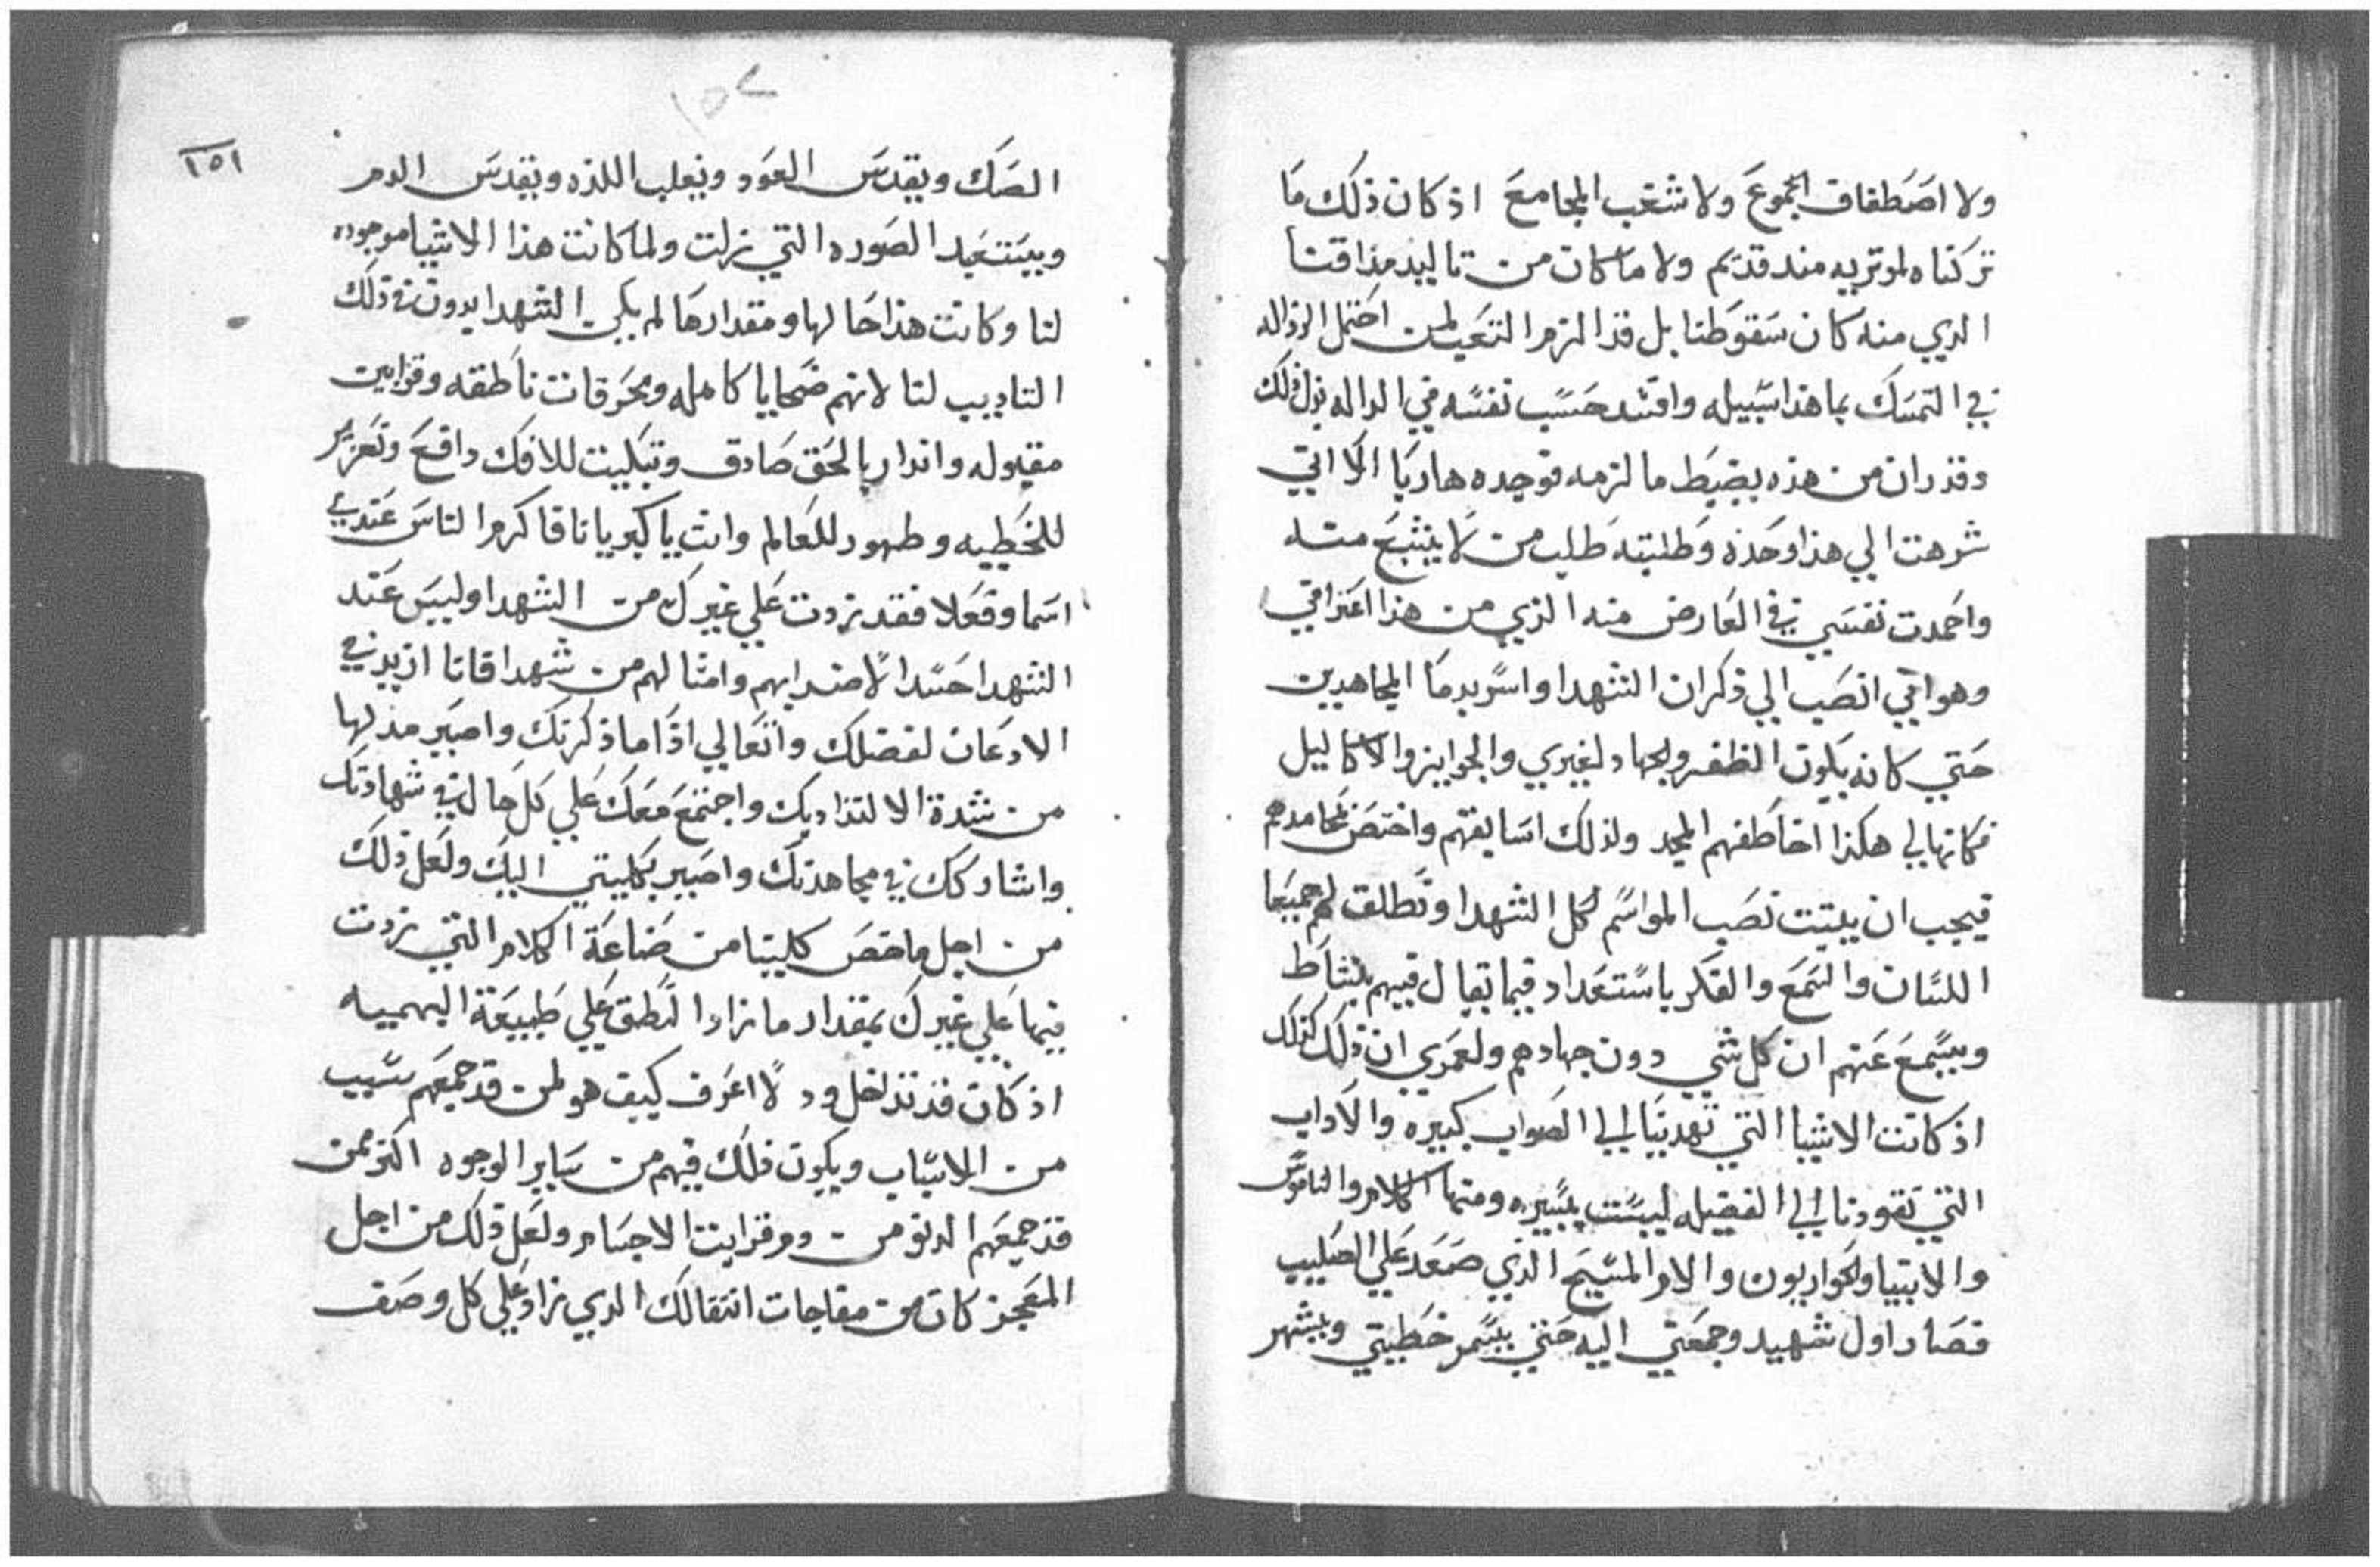 ولا اصطفاف الجموع ولا شغب المجامع اذ كان ذلك ما
تركناه لموتريه مند قديم ولا ما كان من تاليد مذاقتنا
الدي منه كان سقوطنا بل قد الزم التعب لمن احتمل الرذاله
في التمسك بما هذا سبيله وافتد حسب نفسه في الداله
وقد ران من هذه بضبط ما لزمه توجده هاربا الا انني
شرهت الي هذا وحده وطلبته طلب من لا يشبع منه
واحمدت نفسي في العارض منه الذي من هذا اعترافي
وهو اني انصب الي ذكران الشهدا واسر بدما المجاهدين
حتي كانه يكون الظفر والجهاد لغيري والجوايز والاكاليل
فكانها لي هكذا اخاطفهم المجد ولذلك اسابقهم واختص محامدهم
فيجب ان يتبت نصب المواسم لكل الشهدا وتطلق لهم جميعا
اللسان والسمع والفكر باستعداد فيما يقال فيهم بنشاط
ويسمع عنهم ان كل شي دون جهادهم ولعمري ان ذلك كذلك
اذ كانت الاشيا التي تهدينا الي الصواب كبيره والاداب
التي تقودنا الي الفضيله ليست يسيره ومنها الكلام والناموس
والانبيا والحواريون والام المسيح الذي صعد علي الصليب
فصار اول شهيد وجمعني اليه حتي يسمر خطيتي ويشهر
١٥١
١٥٢
الصك ويقدس العود ويغلب اللذه ويقدس الدم
ويستعيد الصوره التي زلت ولما كانت هذا الاشيا موجوده
لنا وكانت هذا حالها ومقدارها لم يكن الشهدا بدون في ذلك
التاديب لنا لانهم ضحايا كامله ومحرقات ناطقه وقرابين
مقبوله واندار بالحق صادق وتبكيت للافك دافع وتعزير
للخطيه وطهور للعالم وانت يا كبريانا فاكرم الناس عندي
اسما وفعلا فقد زدت علي غيرك من الشهدا وليس عند
الشهدا حسدا لاضرابهم وامثالهم من شهدا فانا ازيد في
الادعان لفضلك واتعالي اذا ما ذكرتك واصير مدلها
من شدة الالتذاد بك واجتمع معك علي كل حال في شهادتك
واشاركك في مجاهدتك واصير بكليتي اليك ولعل ذلك
من اجل ما خص كلينا من صناعة الكلام التي زدت
فيها علي غيرك بمقدار ما زاد النطق علي طبيعة البهميه
اذ كان قد تداخل ود لا اعرف كيف هو لمن قد جمعهم سبب
من الاسباب ويكون فلك فيهم من ساير الوجوه اكثر ممن
قد جمعهم الدنو من دم وقرابت الاجسام ولعل ذلك من اجل
المعجز كان من مفاجات انتقالك الدي زاد علي كل وصف